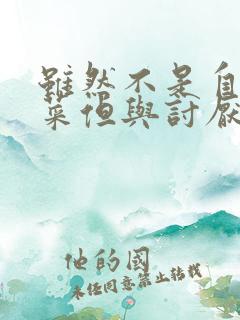 雖然不是自
菜但與討厭
他的國
未任同意禁止轉載